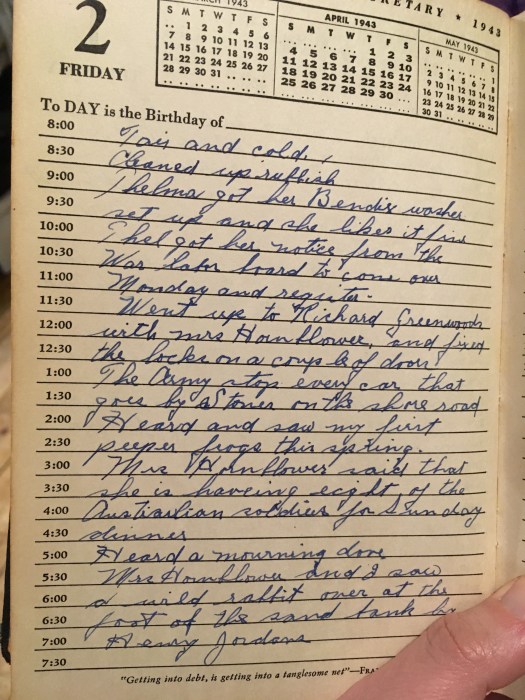 RETARY ★ 1943
2
FRIDAY
MARCH 1943
S M T W T F S
.. 1 2 3 4 5 6
7 8 9 10 11 12 13
14 15 16 17 18 19 20
21 22 23 24 25 26 27
28 29 30 31 .. .. ..
APRIL 1943
S M T W T F S
.. .. .. .. 1 2 3
4 5 6 7 8 9 10
11 12 13 14 15 16 17
18 19 20 21 22 23 24
25 26 27 28 29 30 ..
MAY 1943
S M T W T F S
.. .. .. .. .. .. 1
2 3 4 5 6 7 8
9 10 11 12 13 14 15
16 17 18 19 20 21 22
23 24 25 26 27 28 29
30 31 .. .. .. .. ..
To DAY is the Birthday of
8:00 Fair and cold.
8:30 Cleaned up rubbish
9:00 Thelma got her Bendix washer
9:30 set up and she likes it fine
10:00 Thel got her notice from the
10:30 War labor board to come over
11:00 Monday and register.
11:30 Went up to Richard Greenwoods
12:00 with mrs Hornblower, and fixed
12:30 the locks on a couple of doors
1:00 The Army stop every car that
1:30 goes by Stones on the shore road
2:00 Heard and saw my first
2:30 peeper frogs this spring.
3:00 Mrs Hornblower said that
3:30 she is haveing eight of the
4:00 Austrailian soldiers for Sunday
4:30 dinner
5:00 Heard a mourning dove
5:30 Mrs Hornblower and I saw
6:00 a wild rabbit over at the
6:30 foot of the sand bank by
7:00 Henry Jordans
7:30
"Getting into debt, is getting into a tanglesome net"—FRA